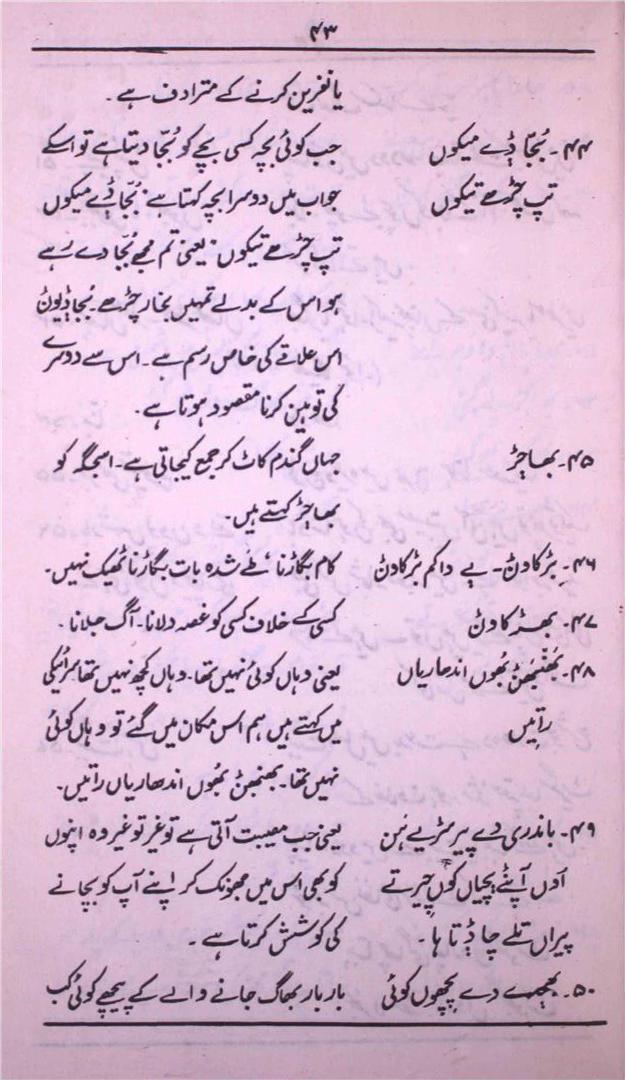 ۴۳
یا نفرین کرنے کے مترادف ہے۔
۴۴۔ بُجّا ڈے میکوں جب کوئی بچہ کسی بچے کو بُجّا دیتا ہے تو اسکے
تپ چڑھے تیکوں جواب میں دوسرا بچہ کہتا ہے بُجّا ڈے میکوں
تپ چڑھے تیکوں: یعنی تم مجھے بُجا دے رہے
ہو اس کے بدلے تمہیں بخار چڑھے بُجا ڈیون
اس علاقے کی خاص رسم ہے۔ اس سے دوسرے
کی توہین کرنا مقصود ہوتا ہے۔
۴۵۔ بھاجڑ جہاں گندم کاٹ کر جمع کیجاتی ہے۔ اسجگہ کو
بھاجڑ کہتے ہیں۔
۴۶۔ بڑکاون۔ بے دا کم بڑکاون کام بگاڑنا طے شدہ بات بگاڑنا ٹھیک نہیں۔
۴۷۔ بھڑکاون کسی کے خلاف کسی کو غصہ دلانا۔ آگ جلانا۔
۴۸۔ بھُنبھَن بھُوں اندھاریاں یعنی وہاں کوئی نہیں تھا۔ وہاں کچھ نہیں تھا سرائیکی
راتیں میں کہتے ہیں ہم اس مکان میں گئے تو وہاں کوئی
نہیں تھا۔ بھنبھن بھُوں اندھاریاں راتیں۔
۴۹۔ باندری دے پیر سڑے ہن یعنی جب مصیبت آتی ہے تو غیر تو غیر وہ اپنوں
اوں آپنے بچیاں کوں چیرتے کو بھی اس میں جھونک کر اپنے آپ کو بچانے
پیراں تلے چا ڈتا ہا۔ کی کوشش کرتا ہے۔
۵۰۔ بھجے دے پچھوں کوئی بار بار بھاگ جانے والے کے پیچھے کوئی کب